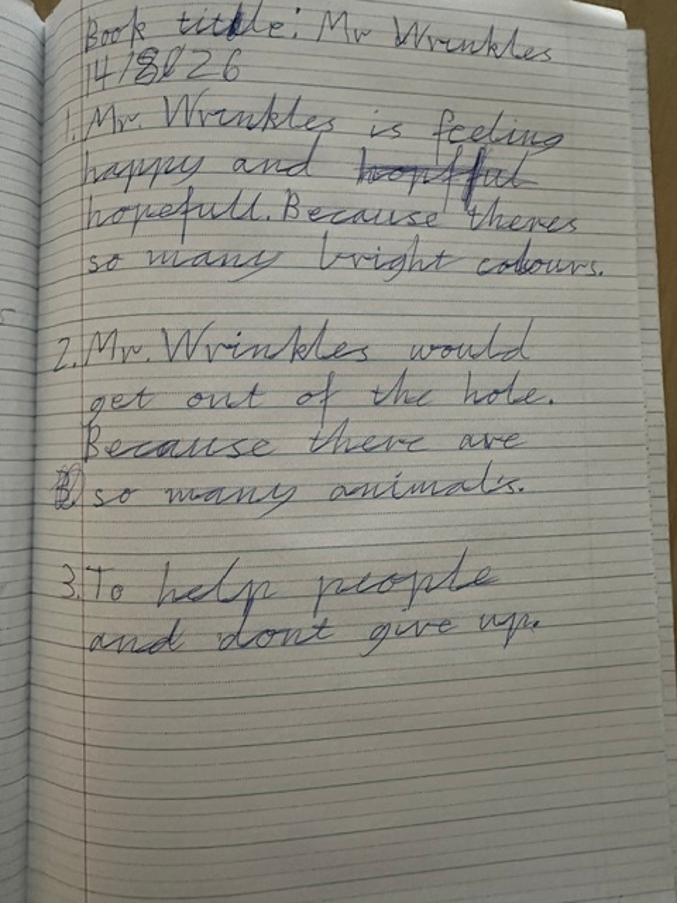 Book title: Mr Wrinkles
14/8/26
1. Mr. Wrinkles is feeling
happy and
hopefull. Because theres
so many bright colours.
2. Mr. Wrinkles would
get out of the hole.
Because there are
so many animals.
3. To help people
and dont give up.